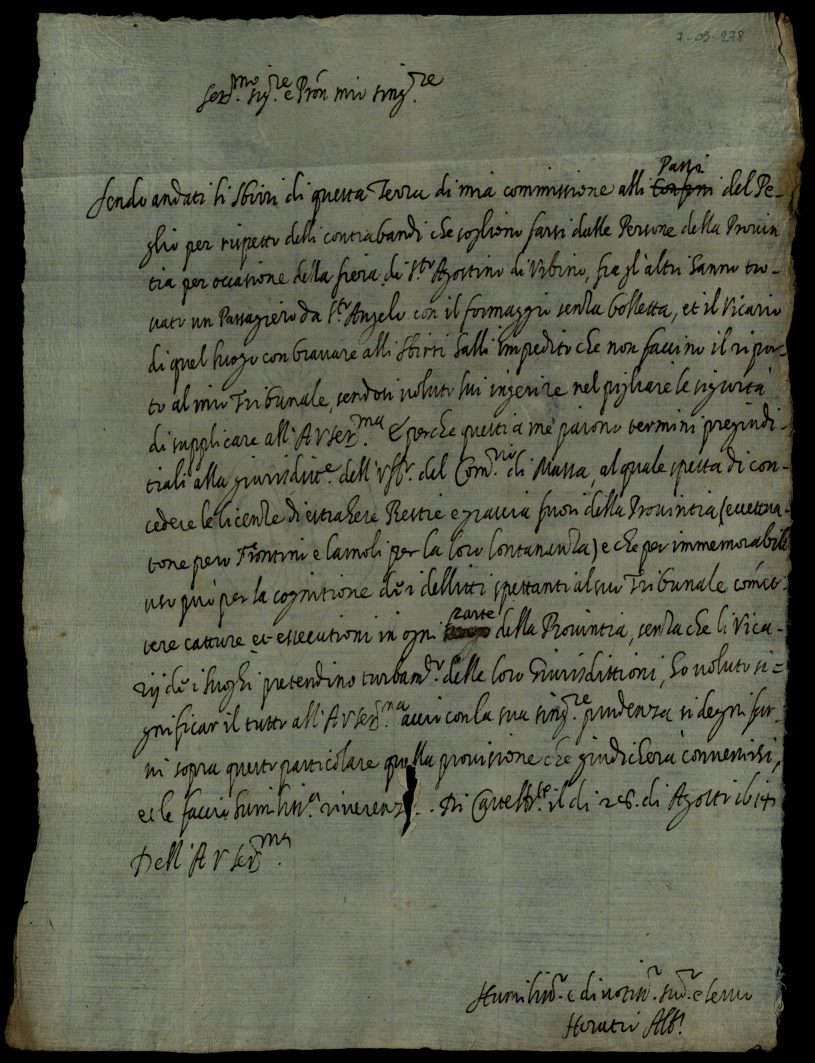 7-05-278
Ser.mo Sig.re e Pròn mio sing.re
Sendo andati li sbirri di questa Terra di mia commissione alli Passi del Pe-
glio per rispetto delli contrabandi che sogliono farsi dalle Persone della Prouin
tia per occasione della fiera di S.to Agostino di Vrbino, fra gl'altri hanno tro-
uato un Passagiero da S.t'Angelo con il formaggio senza bolletta, et il Vicario
di quel luogo con brauare alli sbirri halli impedito che non faccino il ripor-
to al mio Tribunale, sendosi uoluto lui ingerire nel pigliare le sigurtà
di supplicare all'A V Ser.ma E perche questi a me paiono termini pregiudi-
tiali alla giurisdit.e dell'Uff.o del Com.rio di Massa, al quale spetta di con-
cedere le licenze di estrahere Bestie e grascia fuori della Prouintia (eccettua-
tone però Frontini e Lamoli per la loro lontananza) e che per immemorabile
uso può per la cognitione de i delitti spettanti al suo Tribunale com̃et-
tere catture et essecutioni in ogni parte della Prouintia, senza che li Vica-
rij de i luoghi pretendino turband.o delle loro Giurisdittioni, hò uoluto si=
gnificar il tutto all'A V Ser.ma acciò con la sua sing.re prudenza si degni far-
ui sopra questo particolare quella prouisione che giudicherà conuenirsi,
et le faccio humiliss.a riuerenza. Di Castell. il di 28. di Agosto 1614
Dell'A V Ser.ma
Humiliss.o e diuotiss.o sud.o e seruo
Horatio Alb.i